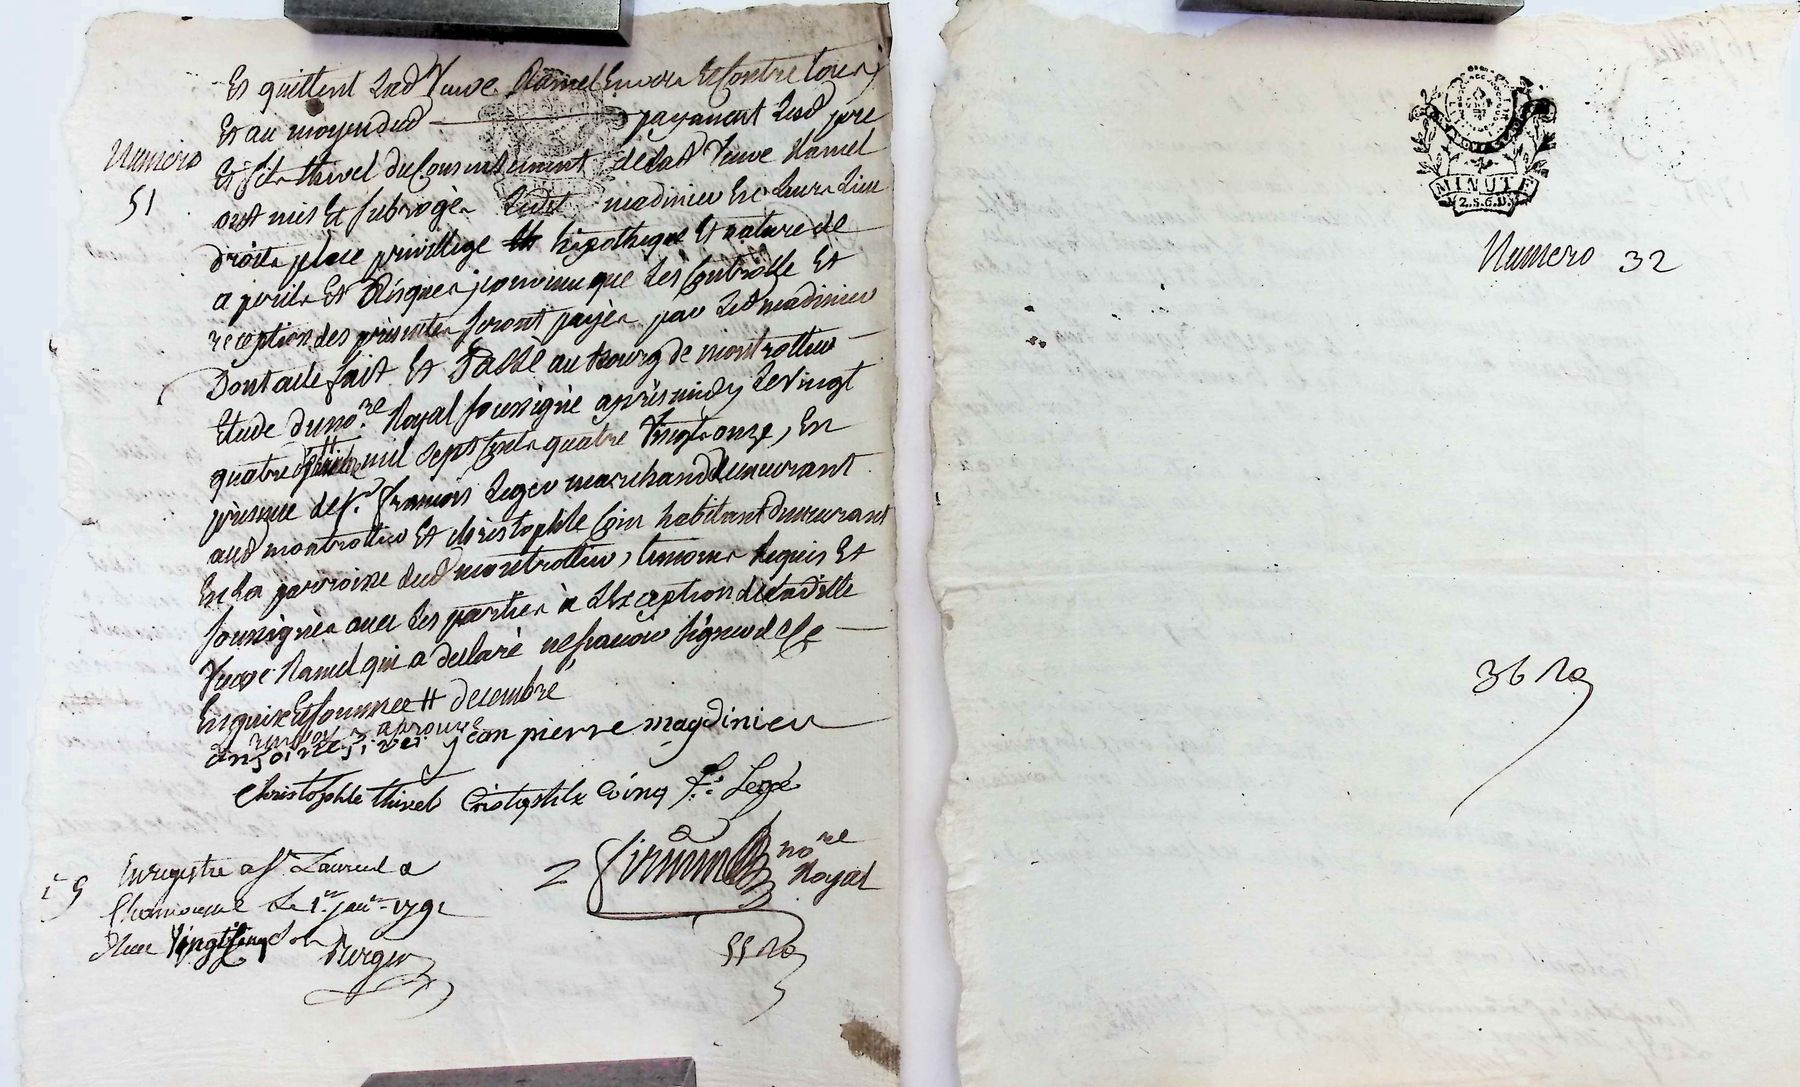 Et quittent Led Veuve Ramel Envers Et Contre tous
Et au moyen dud payement Lesd pere
Numero
51
Et fils thivel du Consentement de lad Veuve Ramel
ont mis Et subrogés Ledit madinieu En Leurs Lieu
droits place privillege hipotheque Et nature de
a perils Et Risques, convenu que Les Controlle Et
reception des presentes seront payés par Led madinieu
Dont acte fait Et Passé au Bourg de montrottier
Etude du no.re Royal soussigné aprés midy Le Vingt
quatre # mil sept Cents quatre Vingts onze, En
presence de s.r françois Leger marchand demeurant
aud montrottier Et christophle Coin habitant demeurant
En La parroisse dud montrottier, temoins Requis Et
soussignés avec Les parties a L'Exception de ladite
Veuve Ramel qui a declaré ne sçavoir signer de ce
Enquise Et sommée # decembre
renvoy aprouvé
jean pierre magdinieu
Christophle thivel Cristophle Coing f.s Legé
2 no.re
Royal
Enregistré a S.t Laurent de
Chamousset Le 1.er janv.er 1792
Reçu Vingt Cinq sols
Berger
MINUTE
2.S.6.D.
Numero 32